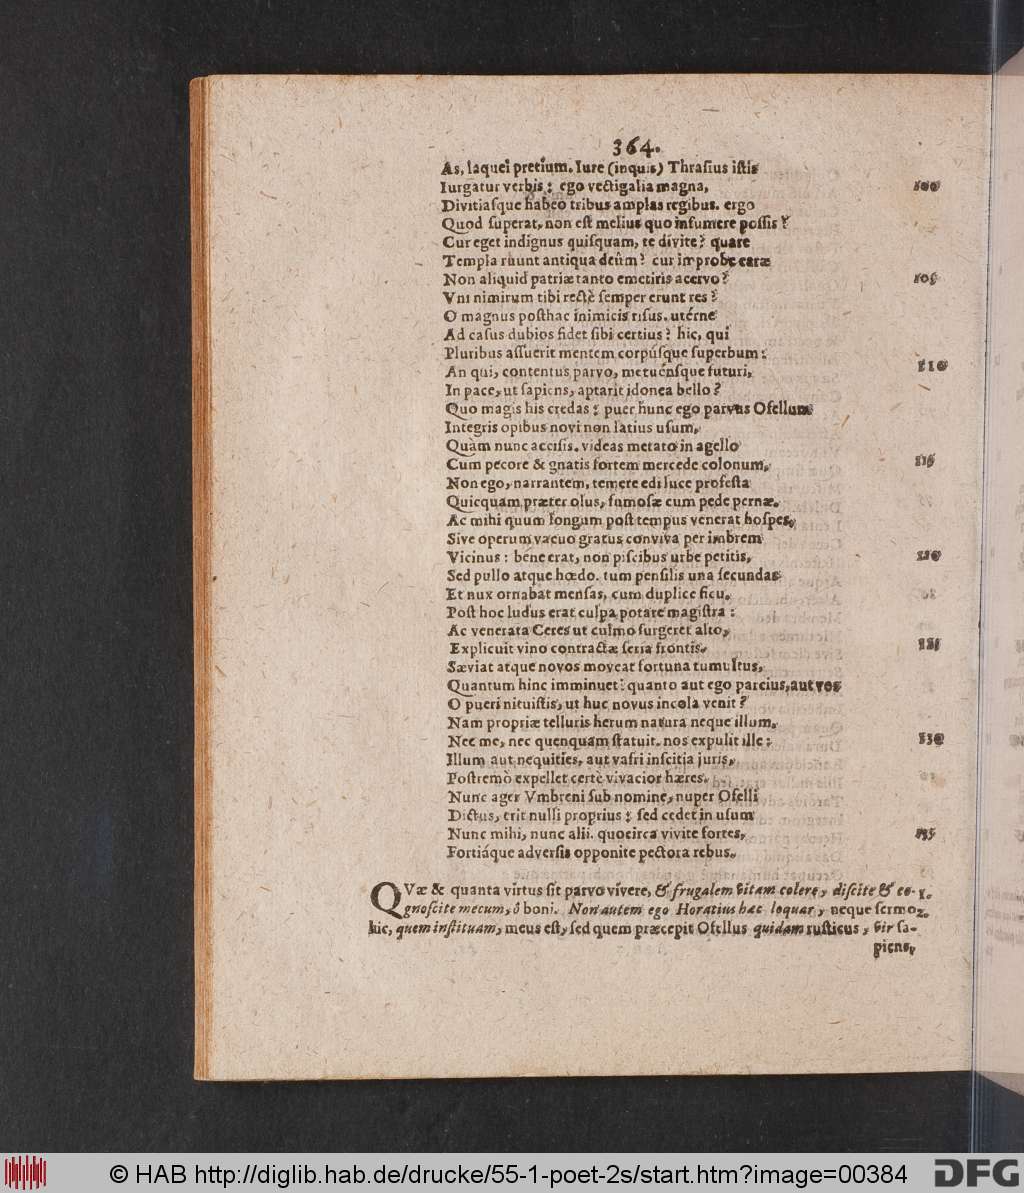 364.
As, laquei pretium. Iure (inquis) Thrasius istis
Iurgatur verbis: ego vectigalia magna, 100
Divitiasque habeo tribus amplas regibus. ergo
Quod superat, non est melius quo insumere possis?
Cur eget indignus quisquam, te divite? quare
Templa ruunt antiqua deûm? cur improbe caræ
Non aliquid patriæ tanto emetiris acervo? 105
Vni nimirum tibi rectè semper erunt res?
O magnus posthac inimicis risus. utérne
Ad casus dubios fidet sibi certius? hic, qui
Pluribus assuerit mentem corpúsque superbum:
An qui, contentus parvo, metuénsque futuri, 110
In pace, ut sapiens, aptarit idonea bello?
Quo magis his credas: puer hunc ego parvus Ofellum
Integris opibus novi non latius usum,
Quàm nunc accisis. videas metato in agello
Cum pecore & gnatis fortem mercede colonum, 115
Non ego, narrantem, temere edi luce profesta
Quicquam præter olus, fumosæ cum pede pernæ.
Ac mihi quum longum post tempus venerat hospes,
Sive operum vacuo gratus conviva per imbrem
Vicinus: béne erat, non piscibus urbe petitis, 120
Sed pullo atque hœdo. tum pensilis uva secundas
Et nux ornabat mensas, cum duplice ficu.
Post hoc ludus erat culpa potare magistra:
Ac venerata Ceres ut culmo surgeret alto,
Explicuit vino contractæ seria frontis. 125
Sæviat atque novos moveat fortuna tumultus,
Quantum hinc imminuet? quanto aut ego parcius, aut vos
O pueri nituistis, ut huc novus incola venit?
Nam propriæ telluris herum natura neque illum,
Nec me, nec quenquam statuit. nos expulit ille: 130
Illum aut nequities, aut vafri inscitia juris,
Postremò expellet certè vivacior hæres.
Nunc ager Vmbreni sub nomine, nuper Ofelli
Dictus, erit nulli proprius: sed cedet in usum
Nunc mihi, nunc alii. quocirca vivite fortes, 135
Fortiáque adversis opponite pectora rebus.
QVæ & quanta virtus sit parvo vivere, & frugalem vitam colere, discite & co- 1.
gnoscite mecum, ô boni. Non autem ego Horatius hæc loquar, neque sermo 2.
hic, quem instituam, meus est, sed quem præcepit Ofellus quidam rusticus, vir sa-
piens,
© HAB http://diglib.hab.de/drucke/55-1-poet-2s/start.htm?image=00384
DFG